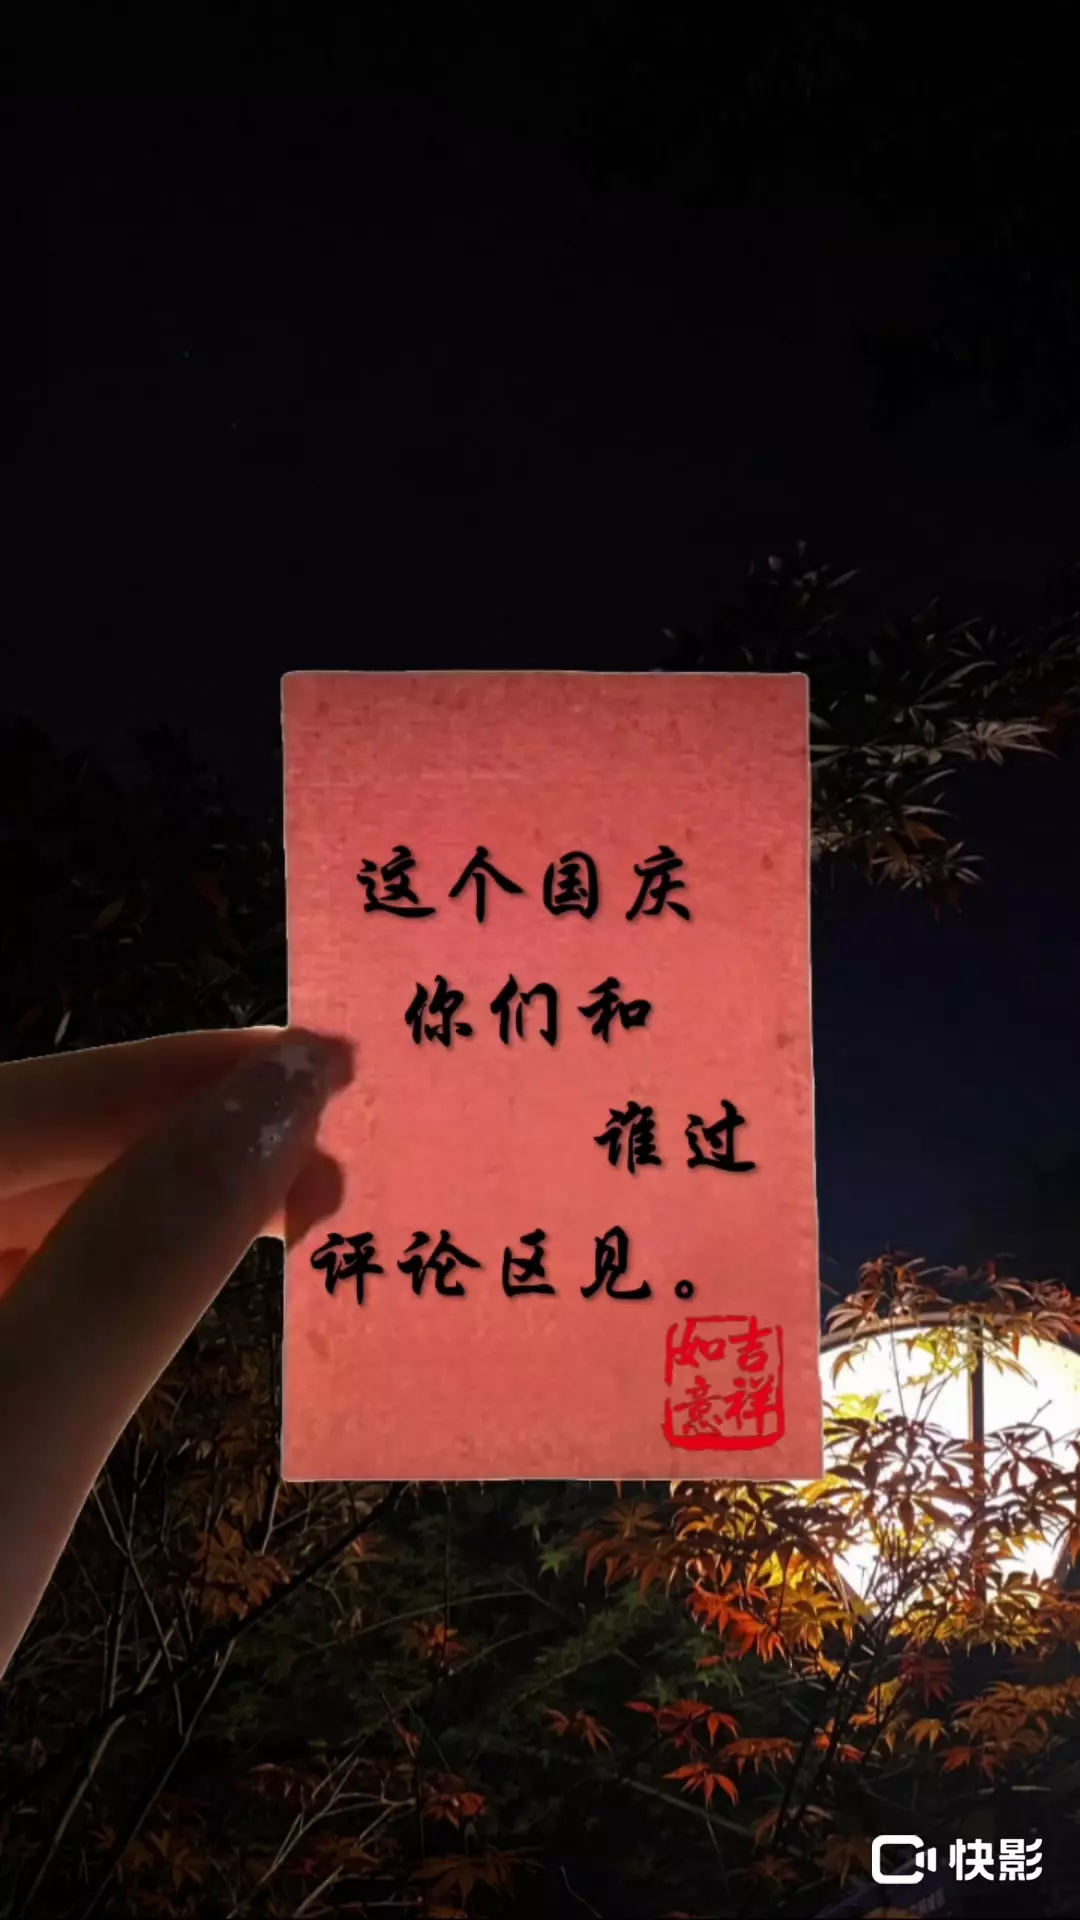 这个国庆
你们和
谁过
评论区见。
吉祥
如意
快影